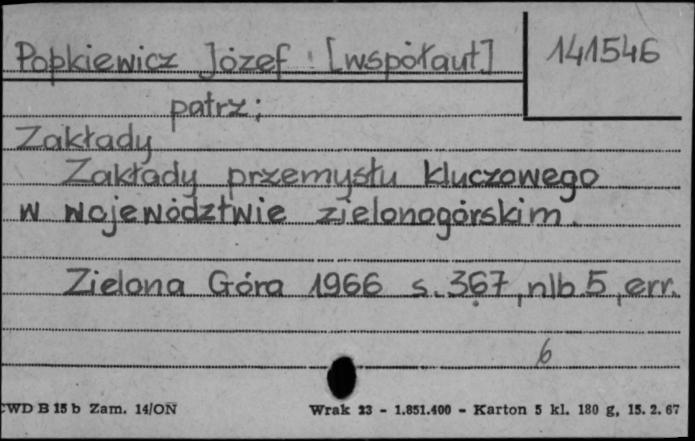 Popkiewicz Józef [współaut] 141546
patrz:
Zakłady
Zakłady przemysłu kluczowego
w województwie zielonogórskim.
Zielona Góra 1966 s. 367, nlb 5, err.
6
CWD B 15 b Zam. 14/ON Wrak 23 - 1.851.400 - Karton 5 kl. 180 g, 15. 2. 67